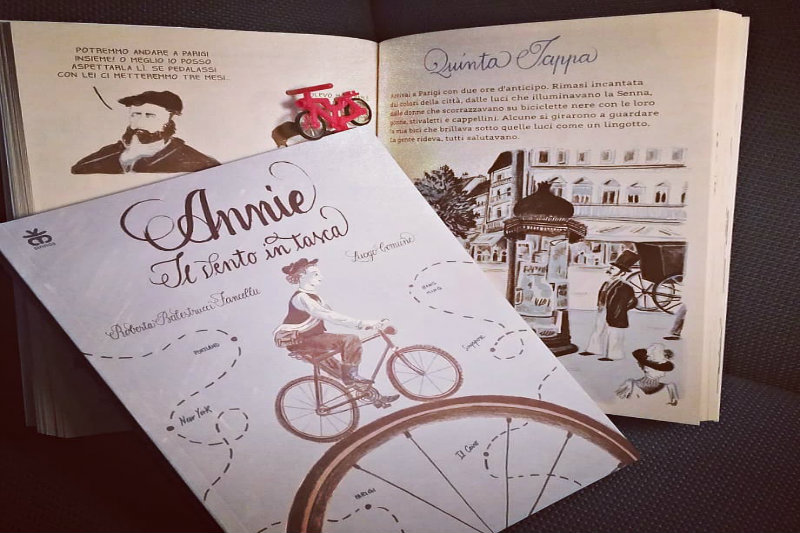 POTREMMO ANDARE A PARIGI
INSIEME! O MEGLIO IO POSSO
ASPETTARLA LÌ. SE PEDALASSI
CON LEI CI METTEREMMO TRE MESI...
Quinta Tappa
Arrivai a Parigi con due ore d'anticipo. Rimasi incantata
dai colori della città, dalle luci che illuminavano la Senna,
dalle donne che scorrazzavano su biciclette nere con le loro
gonne, stivaletti e cappellini. Alcune si girarono a guardare
la mia bici che brillava sotto quelle luci come un lingotto.
La gente rideva, tutti salutavano.
Annie
Il vento in tasca
Roberta Balestrucci Fancellu
Luogo Comune
PORTLAND
New York
HONG
KONG
Singapore
Il Cairo
PARIGI